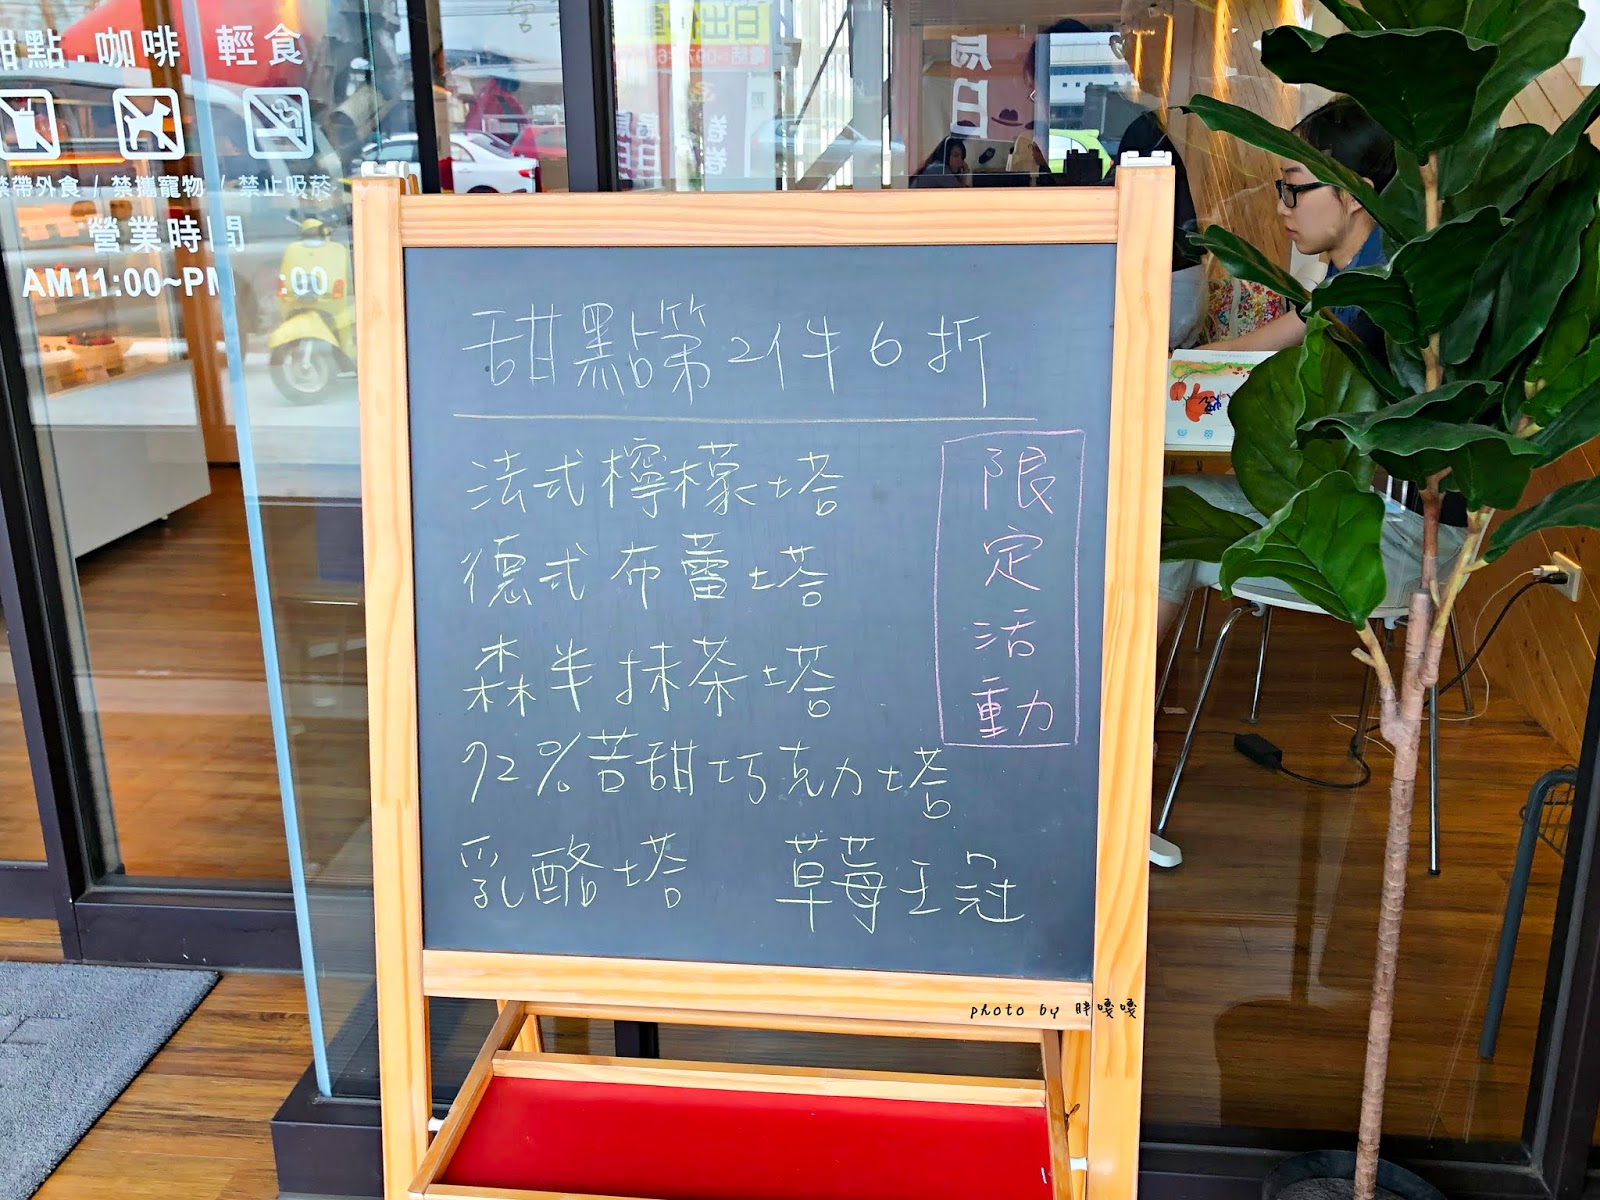 甜點.咖啡 輕食
禁帶外食 / 禁攜寵物 / 禁止吸菸
營業時間
AM11:00~PM :00
甜點第2件6折
法式檸檬塔
德式布蕾塔
森半抹茶塔
72%苦甜巧克力塔
乳酪塔 草莓王冠
限定活動
photo by 胖嘎嘎